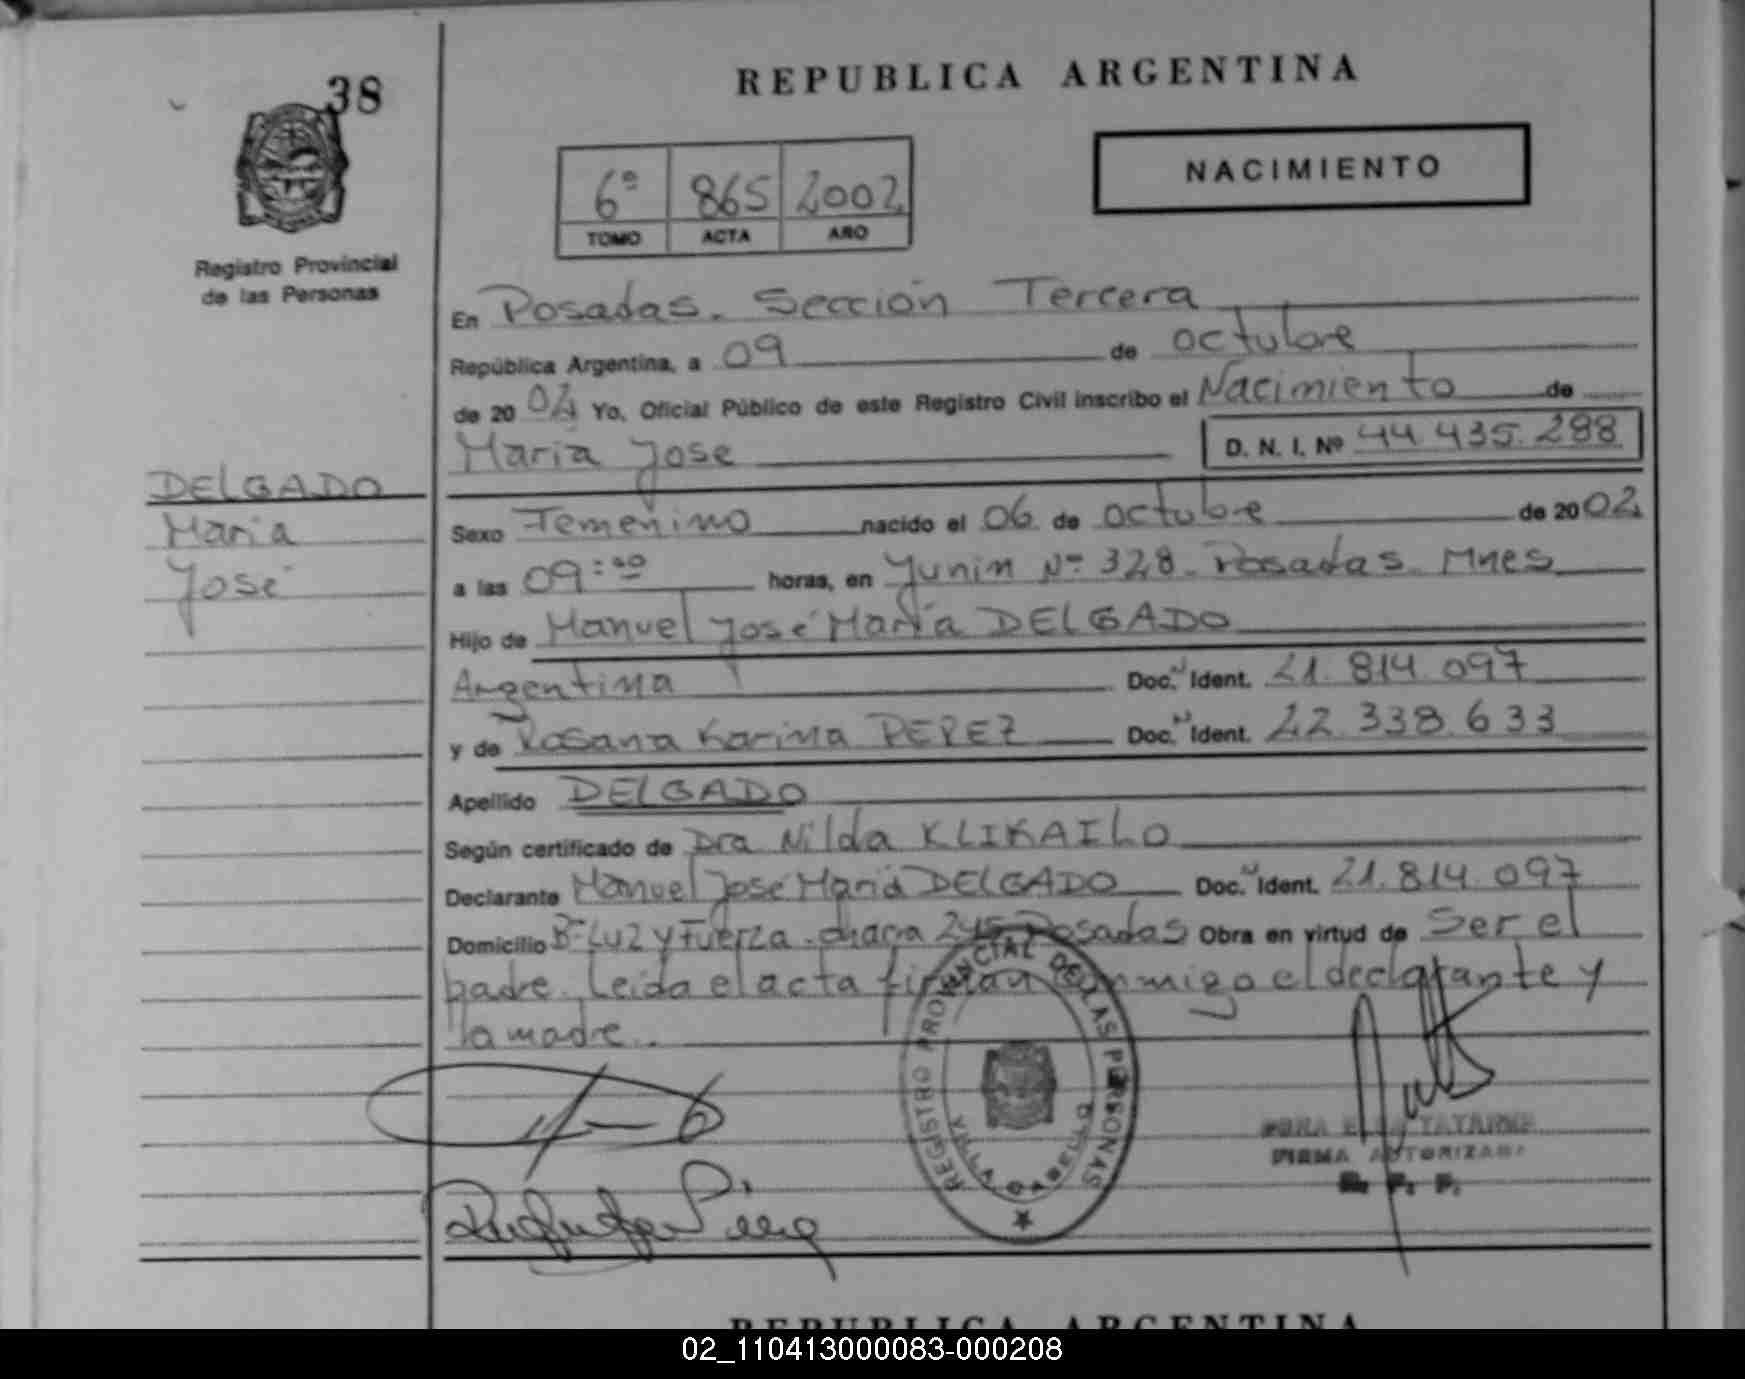 38
REPUBLICA ARGENTINA
NACIMIENTO
6º 865 2002
TOMO ACTA AÑO
Registro Provincial
de las Personas
En Posadas. Sección Tercera
República Argentina, a 09 de octubre
de 2002 Yo, Oficial Público de este Registro Civil inscribo el Nacimiento de
Maria Jose D. N. I. Nº 44.435.288
DELGADO
Maria
José
Sexo Femenino nacido el 06 de octubre de 2002
a las 09: horas, en Junin Nº 328. Posadas. Mnes
Hijo de Manuel José María DELGADO
Argentina Doc. Ident. 21.814.097
y de Rosana Karina PEREZ Doc. Ident. 22.338.633
Apellido DELGADO
Según certificado de Dra Nilda KLIKAILO
Declarante Manuel José Maria DELGADO Doc. Ident. 21.814.097
Domicilio Bº Luz y Fuerza. chacra 245 Posadas Obra en virtud de Ser el
padre. Leida el acta firman conmigo el declarante y
la madre.
REGISTRO PROVINCIAL DE LAS PERSONAS
VILLA CABELLO
FIRMA AUTORIZADA
R. P. P.
REPUBLICA ARGENTINA
02_110413000083-000208